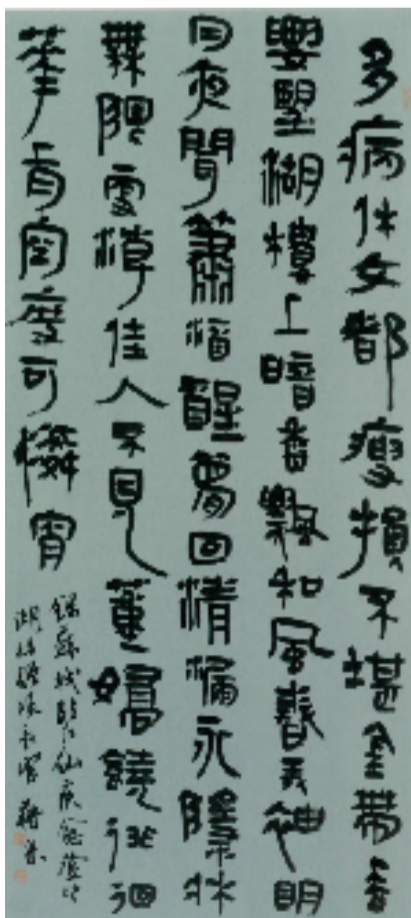 多病休文都瘦損不堪金帶垂
腰望湖樓上暗香飄和風春弄袖明
月夜聞簫酒醒夢回清漏永隱牀
無限潮佳人不見董嬌饒徘徊
花上月空度可憐宵
錄蘇軾臨江仙疾愈登望
湖樓贈項長官